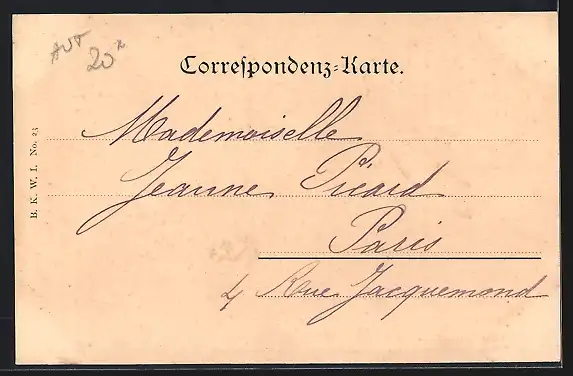 AUT
20
Correspondenz-Karte.
Mademoiselle
Jeanne Picard
Paris
4 Rue Jacquemond
B. K. W. I. No. 23